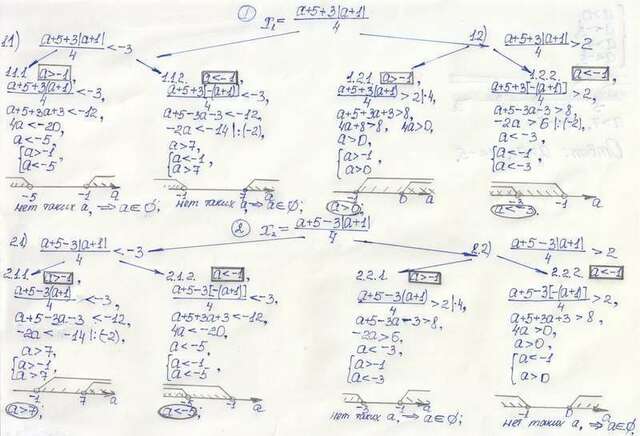 ① x₁ = (a+5+3|a+1|)/4
1.1) (a+5+3|a+1|)/4 < -3
1.2) (a+5+3|a+1|)/4 > 2
1.1.1. a>-1,
(a+5+3(a+1))/4 < -3,
a+5+3a+3 < -12,
4a < -20,
a < -5,
{ a > -1,
a < -5
-5 -1 a
нет таких a, ⇒ a ∈ ∅;
1.1.2. a<-1,
(a+5+3[-(a+1)])/4 < -3,
a+5-3a-3 < -12,
-2a < -14 |:(-2),
a > 7,
{ a < -1,
a > 7
-1 7 a
нет таких a, ⇒ a ∈ ∅;
1.2.1. a>-1,
(a+5+3(a+1))/4 > 2 |·4,
a+5+3a+3 > 8,
4a+8 > 8, 4a > 0,
a > 0,
{ a > -1,
a > 0
-1 0 a
a > 0;
1.2.2. a<-1,
(a+5+3[-(a+1)])/4 > 2,
a+5-3a-3 > 8,
-2a > 6 |:(-2),
a < -3,
{ a < -1
a < -3
-3 -1 a
a < -3;
② x₂ = (a+5-3|a+1|)/4
2.1) (a+5-3|a+1|)/4 < -3
2.2) (a+5-3|a+1|)/4 > 2
2.1.1. a>-1,
(a+5-3(a+1))/4 < -3,
a+5-3a-3 < -12,
-2a < -14 |:(-2),
a > 7,
{ a > -1,
a > 7
-1 7 a
a > 7;
2.1.2. a<-1,
(a+5-3[-(a+1)])/4 < -3,
a+5+3a+3 < -12,
4a < -20,
a < -5,
{ a < -1
a < -5
-5 -1 a
a < -5;
2.2.1. a>-1,
(a+5-3(a+1))/4 > 2 |·4,
a+5-3a-3 > 8,
-2a > 6,
a < -3,
{ a > -1
a < -3
-3 -1 a
нет таких a, ⇒ a ∈ ∅;
2.2.2. a<-1,
(a+5-3[-(a+1)])/4 > 2,
a+5+3a+3 > 8,
4a > 0,
a > 0,
{ a < -1
a > 0
-1 0 a
нет таких a, ⇒ a ∈ ∅;